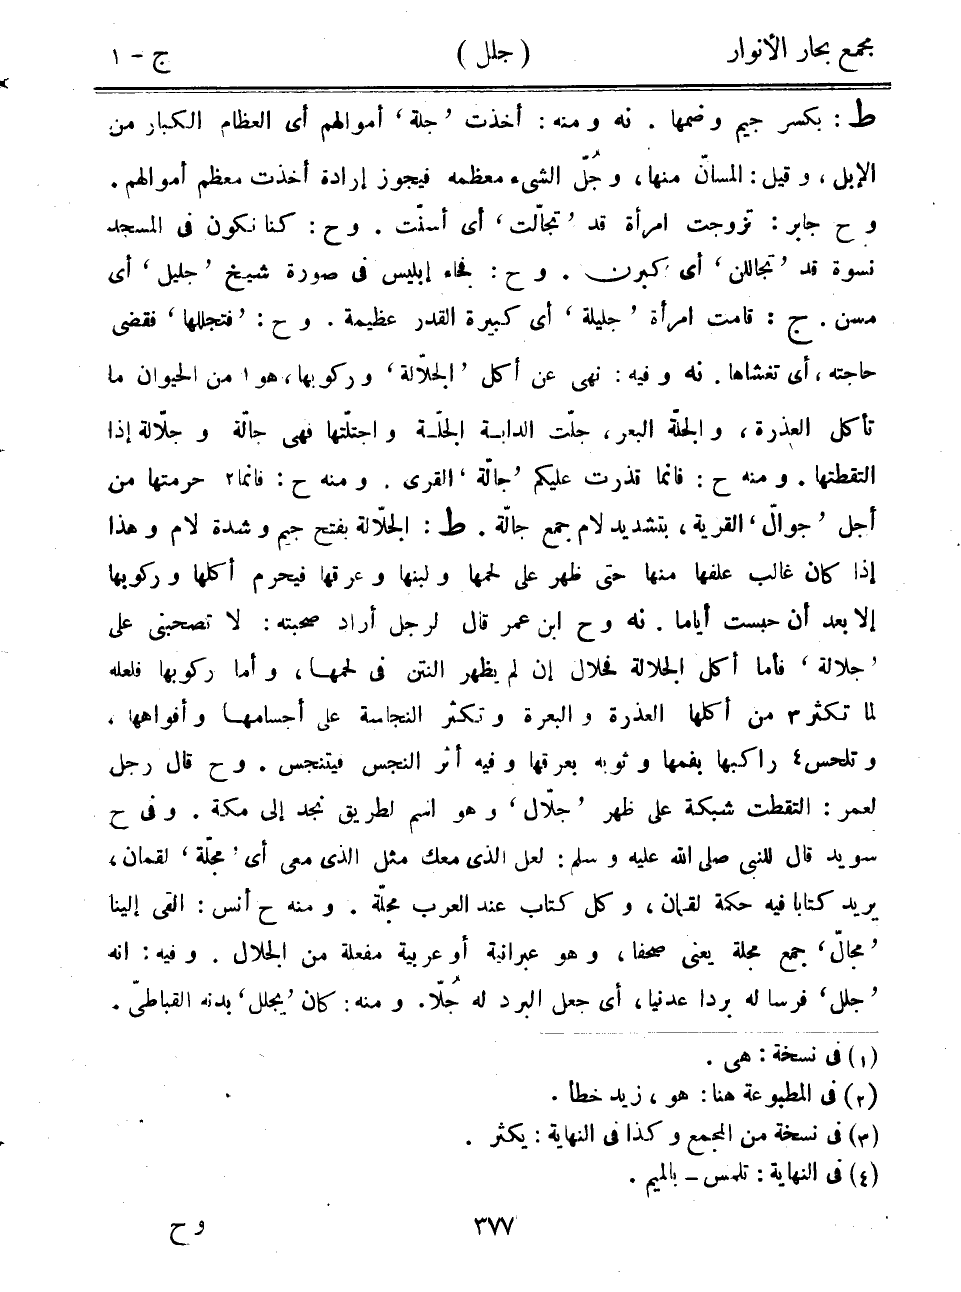 مجمع بحار الأنوار (جلل) ج - ١
ط : بكسر جيم و ضمها . نه و منه : أخذت ’جلة‘ أموالهم أى العظام الكبار من
الإبل ، و قيل : المسانّ منها ، و جُلّ الشىء معظمه فيجوز إرادة أخذت معظم أموالهم .
و ح جابر : تزوجت امرأة قد ’تجالّت‘ أى أسنّت . و ح : كنا نكون فى المسجد
نسوة قد ’تجاللن‘ أى كبرن . و ح : فجاء إبليس فى صورة شيخ ’جليل‘ أى
مسن . ج : قامت امرأة ’جليلة‘ أى كبيرة القدر عظيمة . و ح : ’فتجللها‘ فقضى
حاجته ، أى تغشاها . نه و فيه : نهى عن أكل ’الجلّالة‘ و ركوبها ، هو١ من الحيوان ما
تأكل العذرة ، و الجلّة البعر ، جلّت الدابة الجلّة و اجتلّتها فهى جالّة و جلّالة إذا
التقطتها . و منه ح : فانما قذرت عليكم ’جالّة‘ القرى . و منه ح : فانما٢ حرمتها من
أجل ’جوالّ‘ القرية ، بتشديد لام جمع جالّة . ط : الجلّالة بفتح جيم و شدة لام و هذا
إذا كان غالب علفها منها حتى ظهر على لحمها و لبنها و عرقها فيحرم أكلها و ركوبها
إلا بعد أن حبست أياما . نه و ح ابن عمر قال لرجل أراد صحبته : لا تصحبنى على
’جلالة‘ فأما أكل الجلالة فحلال إن لم يظهر النتن فى لحمها ، و أما ركوبها فلعله
لما تكثر٣ من أكلها العذرة و البعرة و تكثر النجاسة على أجسامها و أفواهها ،
و تلحس٤ راكبها بفمها و ثوبه بعرقها و فيه أثر النجس فيتنجس . و ح قال رجل
لعمر : التقطت شبكة على ظهر ’جلّال‘ و هو اسم لطريق نجد إلى مكة . و فى ح
سويد قال للنبى صلى الله عليه و سلم : لعل الذى معك مثل الذى معى أى ’مجلّة‘ لقمان ،
يريد كتابا فيه حكمة لقمان ، و كل كتاب عند العرب مجلّة . و منه ح أنس : القى إلينا
’مجالّ‘ جمع مجلة يعنى صحفا ، و هو عبرانية أو عربية مفعلة من الجلال . و فيه : انه
’جلل‘ فرسا له بردا عدنيا ، أى جعل البرد له جُلّا . و منه : كان ’يجلل‘ بدنه القباطىّ .
(١) فى نسخة : هى .
(٢) فى المطبوعة هنا : هو ، زيد خطأ .
(٣) فى نسخة من المجمع و كذا فى النهاية : يكثر .
(٤) فى النهاية : تلمس - بالميم .
٣٧٧ و ح